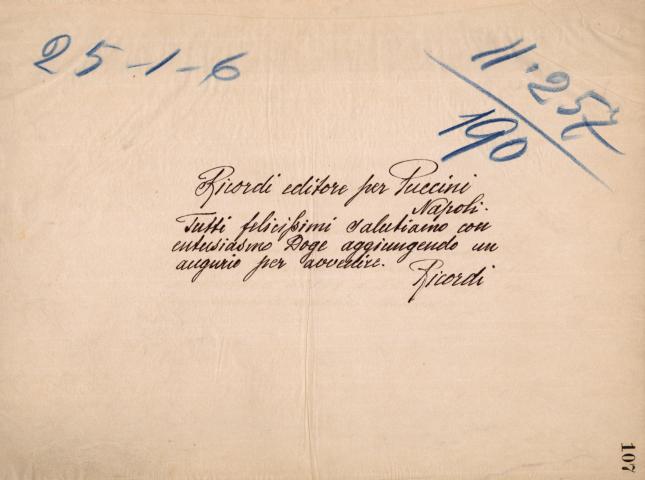 25-1-6
11·257
190
Ricordi editore per Puccini
Napoli.
Tutti felicissimi salutiamo con
entusiasmo Doge aggiungendo un
augurio per avvenire.
Ricordi
107